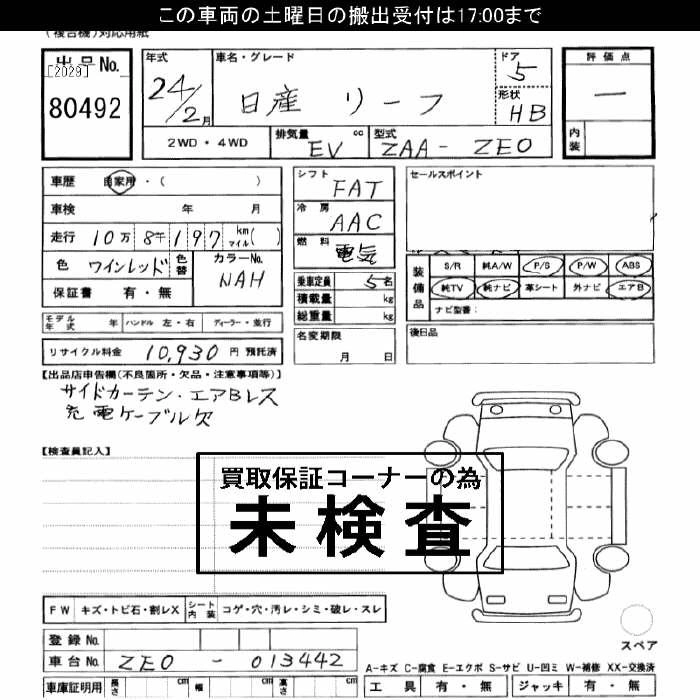 この車両の土曜日の搬出受付は17:00まで
(複合機)対応用紙
出品No.
[2029]
80492
年式
24/2月
車名・グレード
日産 リーフ
ドア
5
形状
HB
評価点
—
内装
2WD・4WD
排気量 cc
EV
型式
ZAA-ZE0
車歴 自家用・( )
車検 年 月
走行 10万8千197 km マイル( )
色 ワインレッド 色替 カラーNo. NAH
保証書 有・無
シフト FAT
冷房 AAC
燃料 電気
乗車定員 5名
積載量 kg
総重量 kg
セールスポイント
装備品 S/R 純A/W P/S P/W ABS
純TV 純ナビ 革シート 外ナビ エアB
ナビ型番:
モデル年式 年 ハンドル 左・右 ディーラー・並行
名変期限
月 日
後日品
リサイクル料金 10,930 円 預託済
【出品店申告欄(不良箇所・欠品・注意事項等)】
サイドカーテン・エアBレス
充電ケーブル欠
【検査員記入】
買取保証コーナーの為
未検査
FW キズ・トビ石・割レX シート内装 コゲ・穴・汚レ・シミ・破レ・スレ
登録No.
車台No. ZE0-013442
スペア
A-キズ C-腐食 E-エクボ S-サビ U-凹ミ W-補修 XX-交換済
車庫証明用 長さ cm 幅 cm 高さ cm
工具 有・無 ジャッキ 有・無